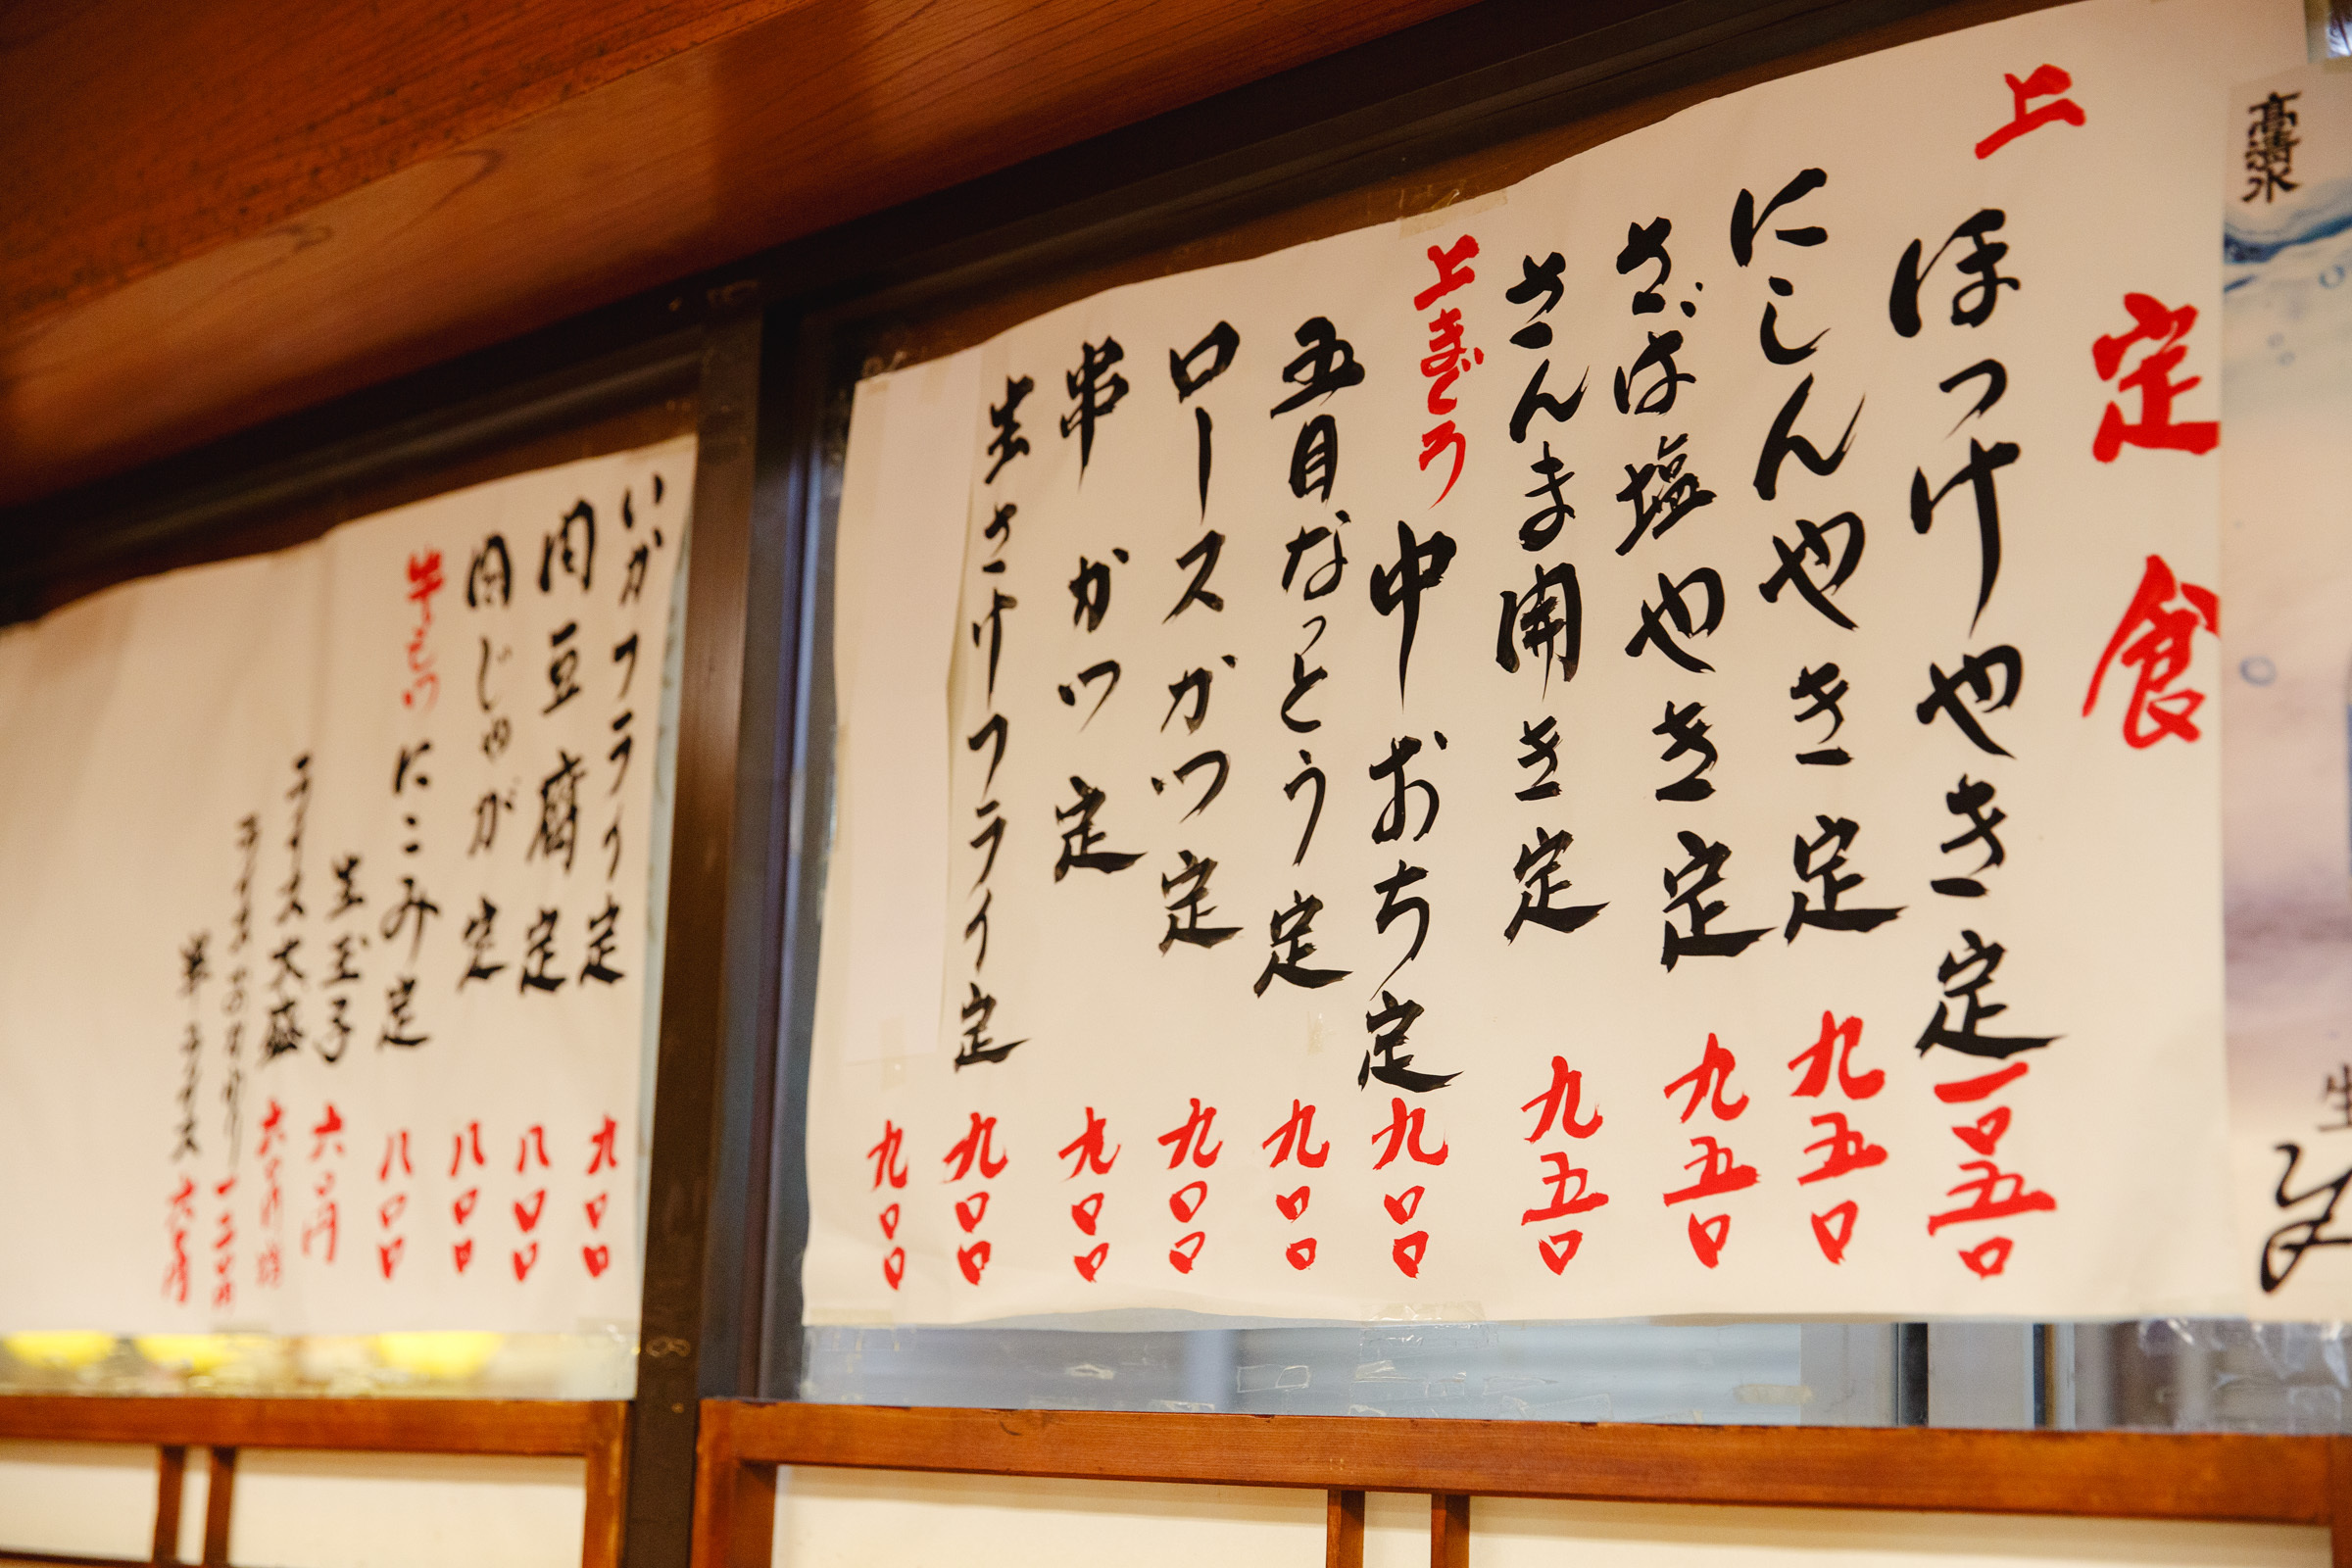 高清水
生
定食
上
ほっけやき定 一〇五〇
にしんやき定 九五〇
さば塩やき定 九五〇
さんま開き定 九五〇
上まぐろ
中おち定 九〇〇
五目なっとう定 九〇〇
ロースかつ定 九〇〇
串かつ定 九〇〇
生さけフライ定 九〇〇
九〇〇
いかフライ定 九〇〇
肉豆腐定 八〇〇
肉じゃが定 八〇〇
牛もつ
にこみ定 八〇〇
生玉子 六〇円
ライス大盛
半ライス